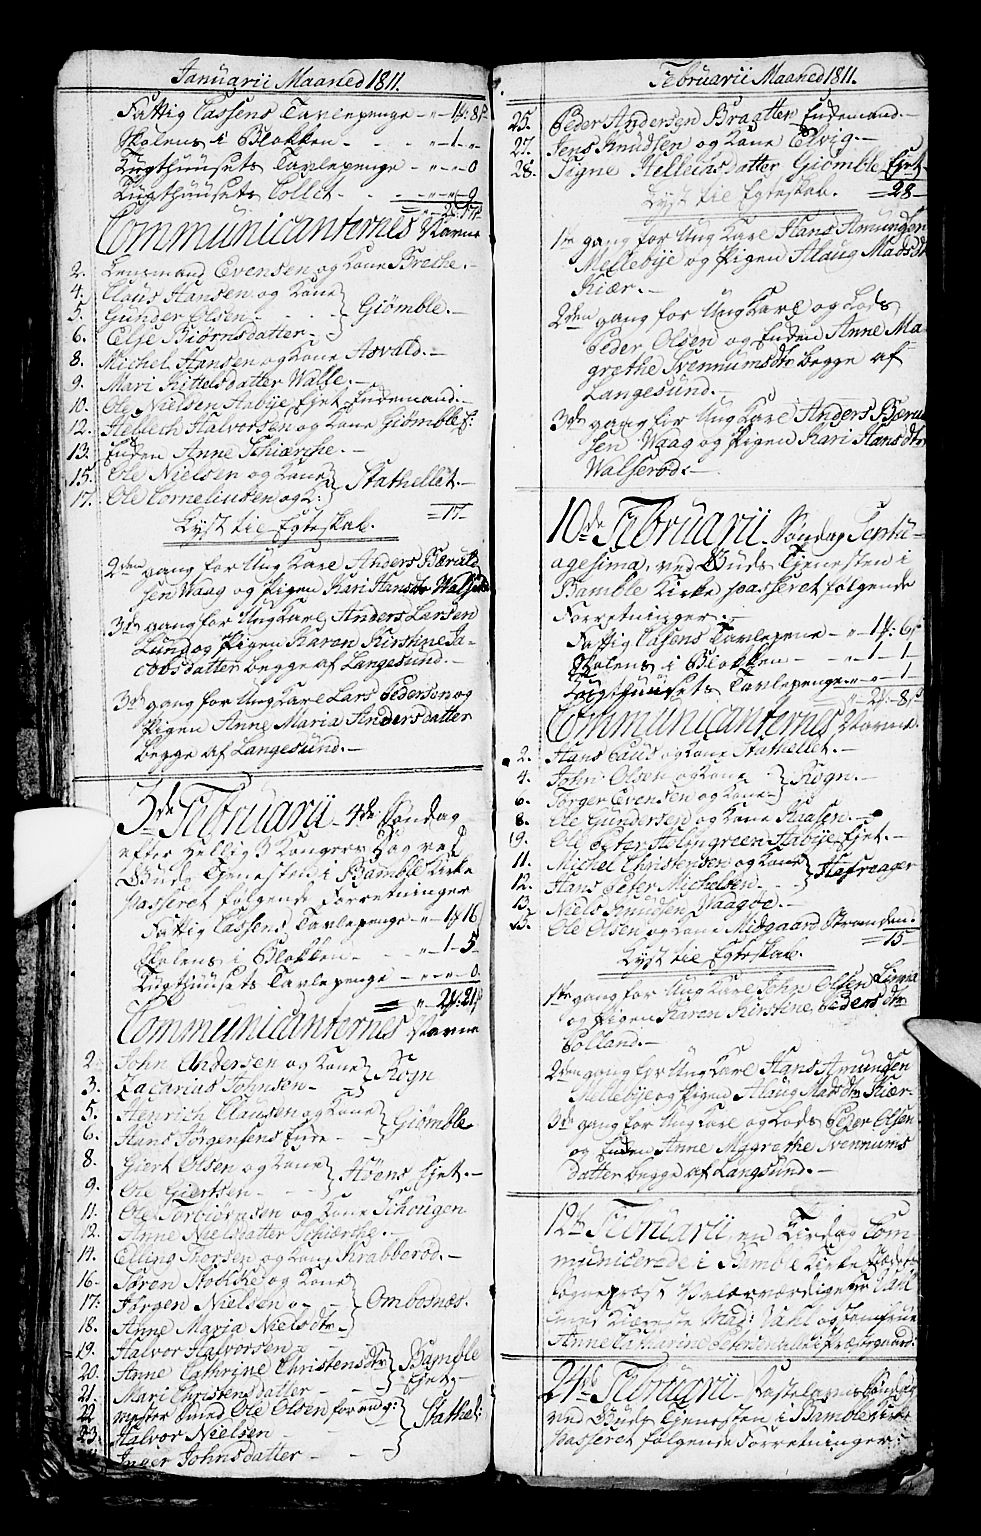 Januarii Maaned 1811.
Fattig Cassens Tavlepenge - " - 1 4: 8 s
Skolens i Blokken - - - " - 1 - "
Tugthuusets Tavlepenge - " - " - 0
Tugthuusets Collet - - - " - " - 9
Communicanternes Navne
2. Lensmand Evensen og Kone Brethe. -
4. Claus Hansen og Kone
5. Gunder Olsen - - - Giömble. -
6. Celje Biörnsdatter -
8. Michel Hansen og Kone Asvald. -
9. Mari Kittelsdatter Walle. -
10. Ole Nielsen Aabye Ejet Endemand. -
12. Helleth Halvorsen og Kone Giömble E:
13. Enken Anne Schierche. -
15. Ole Nielsen og Kone Stathellet. -
17. Ole Corneliusen og K:
Lyst til Egteskab. = 17 -
2den gang for Ung Karl Anders Bærulf
sen Waag og Pigen Kari Hansdtr
3die gang for Ung Karl Anders Larsen
Lund og Pigen Karen Kirstine Ja-
cobsdatter begge af Langesund. -
3die gang for Ung Karl Lars Pedersen og
Pigen Anne Maria Andersdatter
begge af Langesund. -
3de Februarii - 4de Söndag
efter Hellig 3 Kongers Dag ved
Guds Tjenesten i Bamble Kirke
passeret følgende Forretninger
Fattig Cassens Tavlepenge - " - 1 4 16
Skolens i Blokken - - - " - 1 - 5
Tugthuusets Tavlepenge - " - " - 0
= " 2 4: 21 s
Communicanternes Navne
2. John Andersen og Kone Rogn
3. Zacarias Johnsen -
5. Henrich Clausen og Kone Giömble
6. Hans Jörgensens Enke -
8. Giert Olsen og Kone Aöens Ejet. -
9. Ole Giertsen - - -
11. Ole Torbiörnsen og Kone Tihougen
12. Anne Nielsdatter Schierche. -
14. Elling Thorsen og Kone Krabberöd. -
16. Sören Stokke og Kone
17. Jörgen Nielsen - Ombosnæs. -
18. Anne Maria Nielsdtr
19. Halvor Halvorsen -
20. Anne Cathrine Christensdtr Bamble
21. Mari Christensdatter - - Ejet. -
22. Smed Ole Olsen Stathel:
23. Halvor Nielsen -
Inger Johnsdatter -
Februarii Maaned 1811.
25. Peder Andersen Braatter Endemand. -
27. Jens Knudsen og Kone Elvig. -
28. Signe Helleiksdatter Giömble Ejet -
Lyst til Egteskab. = 28 -
1ste gang for Ung Karl Hans Amundsen
Mellebye og Pigen Aslaug Madsdtr
Kiær. -
2den gang for Ung Karl og Lods
Peder Olsen og Enken Anne Ma-
grethe Svennumsdtr begge af
Langesund. -
3die gang for Ung Karl Anders Bærul
sen Waag og Pigen Kari Hansdtr
Walleröd. -
10de Februarii - Söndag Septu-
agesima, ved Guds Tjenesten i
Bamble Kirke passeret følgende
Forretninger. -
Fattig Casens Tavlepene - " - 1 4: 6 s
Skolens i Blokken - - - " - 1 - 1
Tugthuusets Tavlepenge - " - " - 1
" 2 4: 8 s
Communicanternes Navne. -
2. Hans Claus og Kone Stathellet. -
4. John Olsen og Kone Rogn. -
6. Törger Evensen og Kone
8. Ole Gundersen og Kone Hualen. -
19. Ole Peter Holmgreen Aabye Ejet. -
11. Michel Christensen og Kone Hafsrager
12. Hans Peter Michelsen - -
13. Niels Knudsen Waagöe. -
15. Ole Olsen og Kone Midgaard Stranden.
= 15 -
Lyst til Egteskab.
1ste gang for Ung Karl John Olsen
og Pigen Karen Kirstine Pedersdtr
2den gang for Ung Karl Hans Amundsen
Mellebye og Pigen Aslaug Madsdtr Kiær -
3die gang for Ung Karl og Lods Peder Olsen
og Enken Anne Magrethe Svennums
datter begge af Langsund. -
12te Februarii, en Tirsdag Com-
municerede i Bamble Kirke
Sognepræst Velærværdige Hr Vahl
med Kiereste Mad: Vahl og Jomfrue
Anne Cathrine i Præstegaard.
24de Februarii - Fastelavns Söndag
ved Guds Tjenesten i Bamble Kirke
passeret følgende Forretninger.